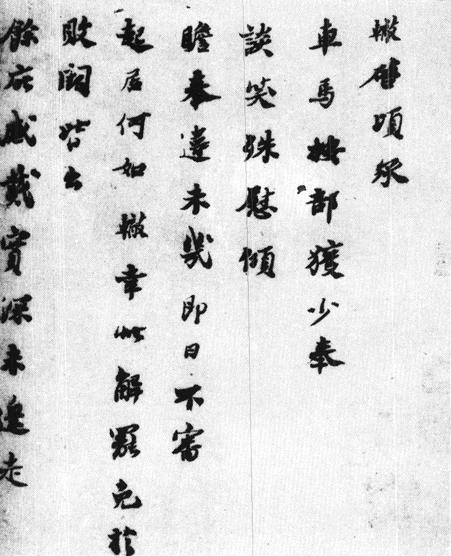 轍啓頃承
車馬按部獲少奉
談笑殊慰傾
瞻奉違未幾即日不審
起居何如轍幸此解罷免於
敗闕皆出
餘庇感戴實深未遑走